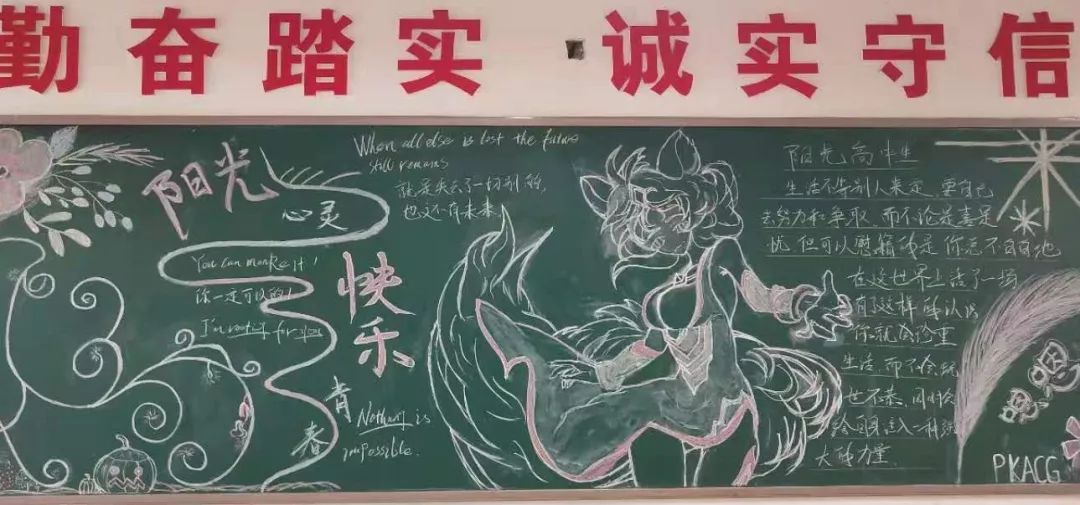 勤奋踏实·诚实守信
阳光
心灵
You can make it!
你一定可以的!
I'm rooting for you
快乐
青春
When all else is lost the future
still remains
就是失去了一切别的,
也还有未来.
Nothing is
impossible.
阳光高中生
生活不等别人来定,要自己
去努力和争取,而不论是喜是
忧,但可以慰籍的是,你总不自白地
在这世界上活了一场
有这样的认识
你就会珍重
生活,而不会玩
世不恭,同时
大的力量.
PKACG